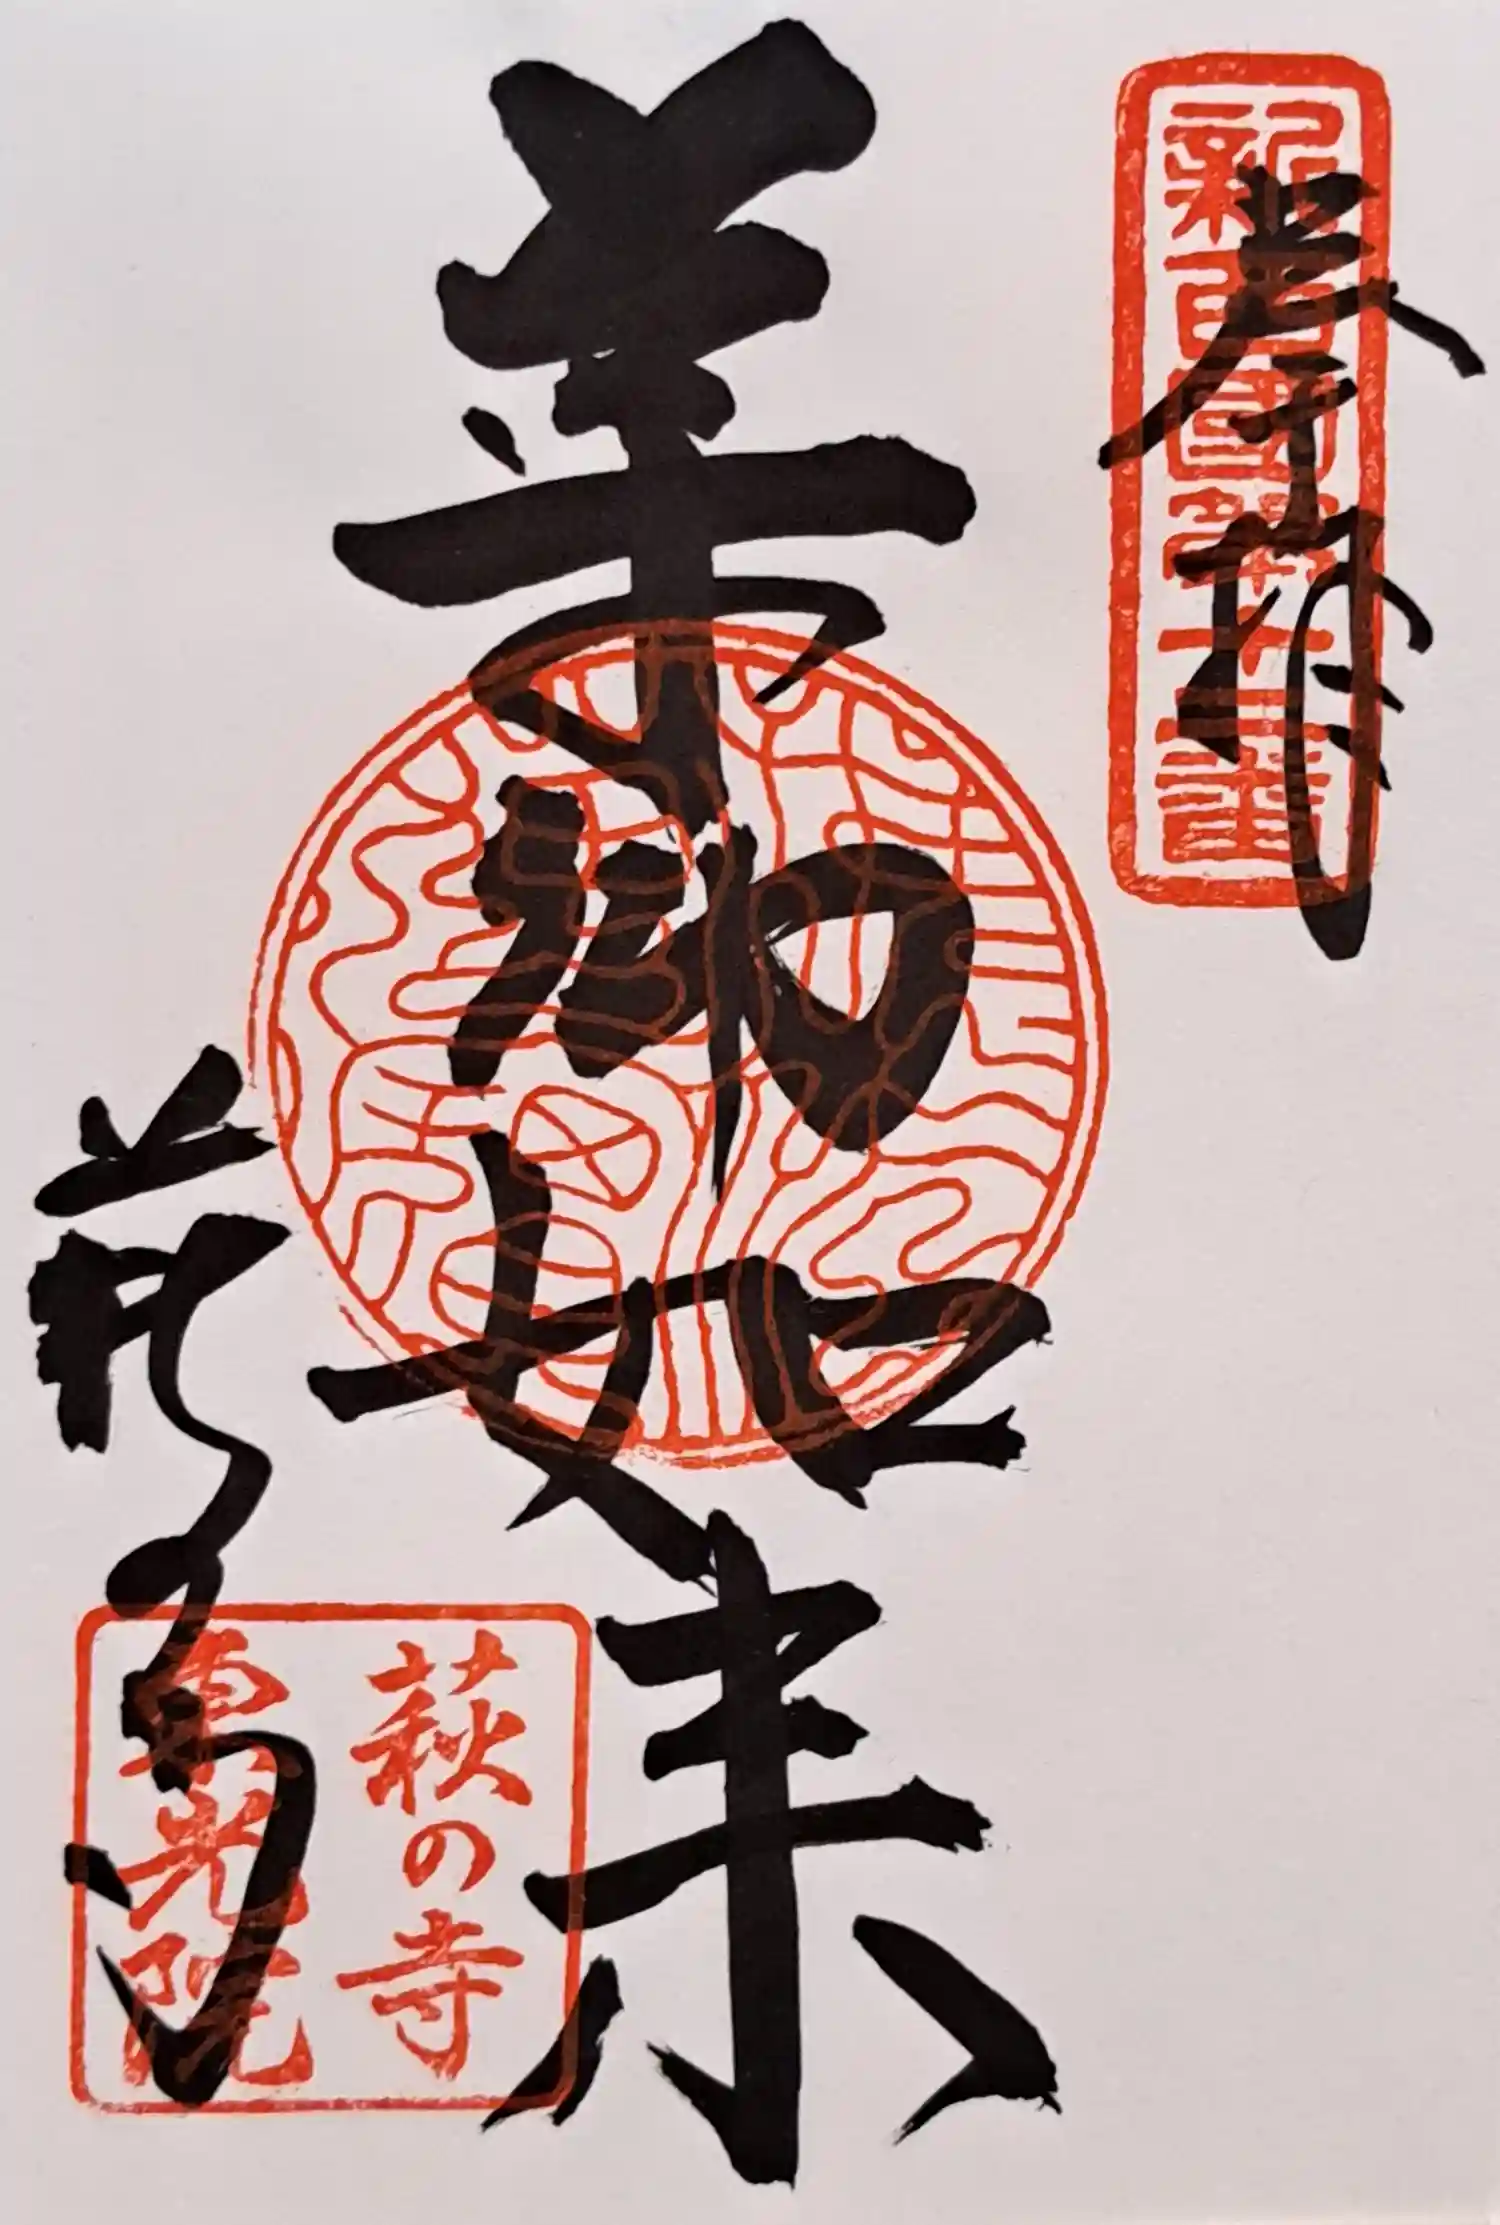 奉拝
新西國第十二番
薬師如来
萩の寺
萩の寺
東光院